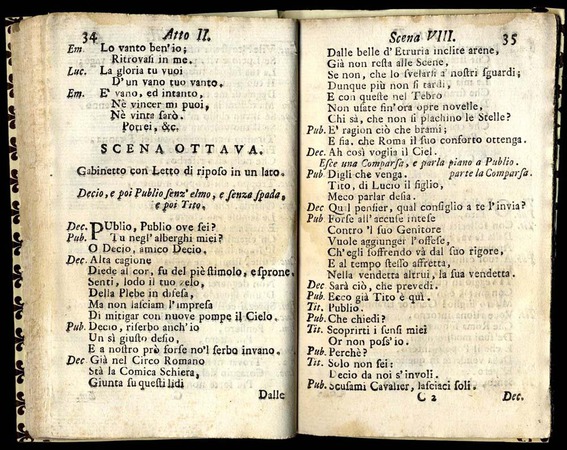 34 Atto II.
Em. Lo vanto ben'io;
Ritrovasi in me.
Luc. La gloria tu vuoi
D'un vano tuo vanto.
Em. E' vano, ed intanto,
Nè vincer mi puoi,
Nè vinta sarò.
Potrei, &c.
SCENA OTTAVA.
Gabinetto con Letto di riposo in un lato.
Decio, e poi Publio senz'elmo, e senza spada,
e poi Tito.
Dec. PUblio, Publio ove sei?
Pub. Tu negl'alberghi miei?
O Decio, amico Decio.
Dec. Alta cagione
Diede al cor, fu del piè stimolo, e sprone.
Senti, lodo il tuo zelo,
Della Plebe in difesa,
Ma non lasciam l'impresa
Di mitigar con nuove pompe il Cielo.
Pub. Decio, riserbo anch'io
Un sì giusto desio,
E a nostro prò forse no'l serbo invano.
Dec. Già nel Circo Romano
Stà la Comica Schiera,
Giunta su questi lidi
Dalle
Scena VIII. 35
Dalle belle d'Etruria inclite arene,
Già non resta alle Scene,
Se non, che lo svelarsi a nostri sguardi;
Dunque più non si tardi,
E con queste nel Tebro
Non usate fin'ora opre novelle,
Chi sà, che non si plachino le Stelle?
Pub. E' ragion ciò che brami;
E fia, che Roma il suo conforto ottenga.
Dec. Ah così voglia il Ciel.
Esce una Comparsa, e parla piano a Publio.
Pub Digli che venga. parte la Comparsa.
Tito, di Lucio il figlio,
Meco parlar desia.
Dec Qual pensier, qual consiglio a te l'invia?
Pub Forse all'accuse intese
Contro 'l suo Genitore
Vuole aggiunger l'offese,
Ch'egli soffrendo và dal suo rigore,
E al tempo stesso affretta,
Nella vendetta altrui, la sua vendetta.
Dec Sarà ciò, che prevedi.
Pub. Ecco già Tito è quì.
Tit. Publio.
Pub. Che chiedi?
Tit. Scoprirti i sensi miei
Or non poss'io.
Pub. Perchè?
Tit. Solo non sei:
Decio da noi s'involi.
Pub. Scusami Cavalier, lasciaci soli.
C 2 Dec.